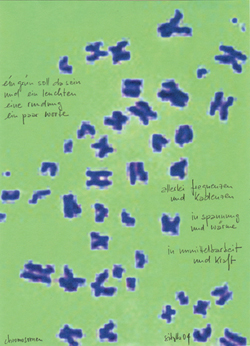 ein grün soll da sein
und ein leuchten
eine rundung
ein paar worte
allerlei frequenzen
und Kadenzen
in spannung
und wärme
in unmittelbarkeit
und Kraft
chromosomen